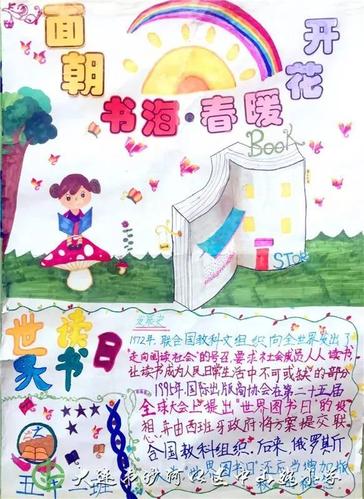 面朝
书海·春暖
开花
Book
STORY
世界
读书
日
发展史
1972年,联合国教科文组织向全世界发出了
"走向阅读社会"的号召,要求社会成员人人读书,
让读书成为人民日常生活中不可或缺的部分
1995年,国际出版商协会在第二十五届
全球大会上提出"世界图书日"的设
想,并由西班牙政府将方案提交联
合国教科文组织。后来,俄罗斯
五年 班